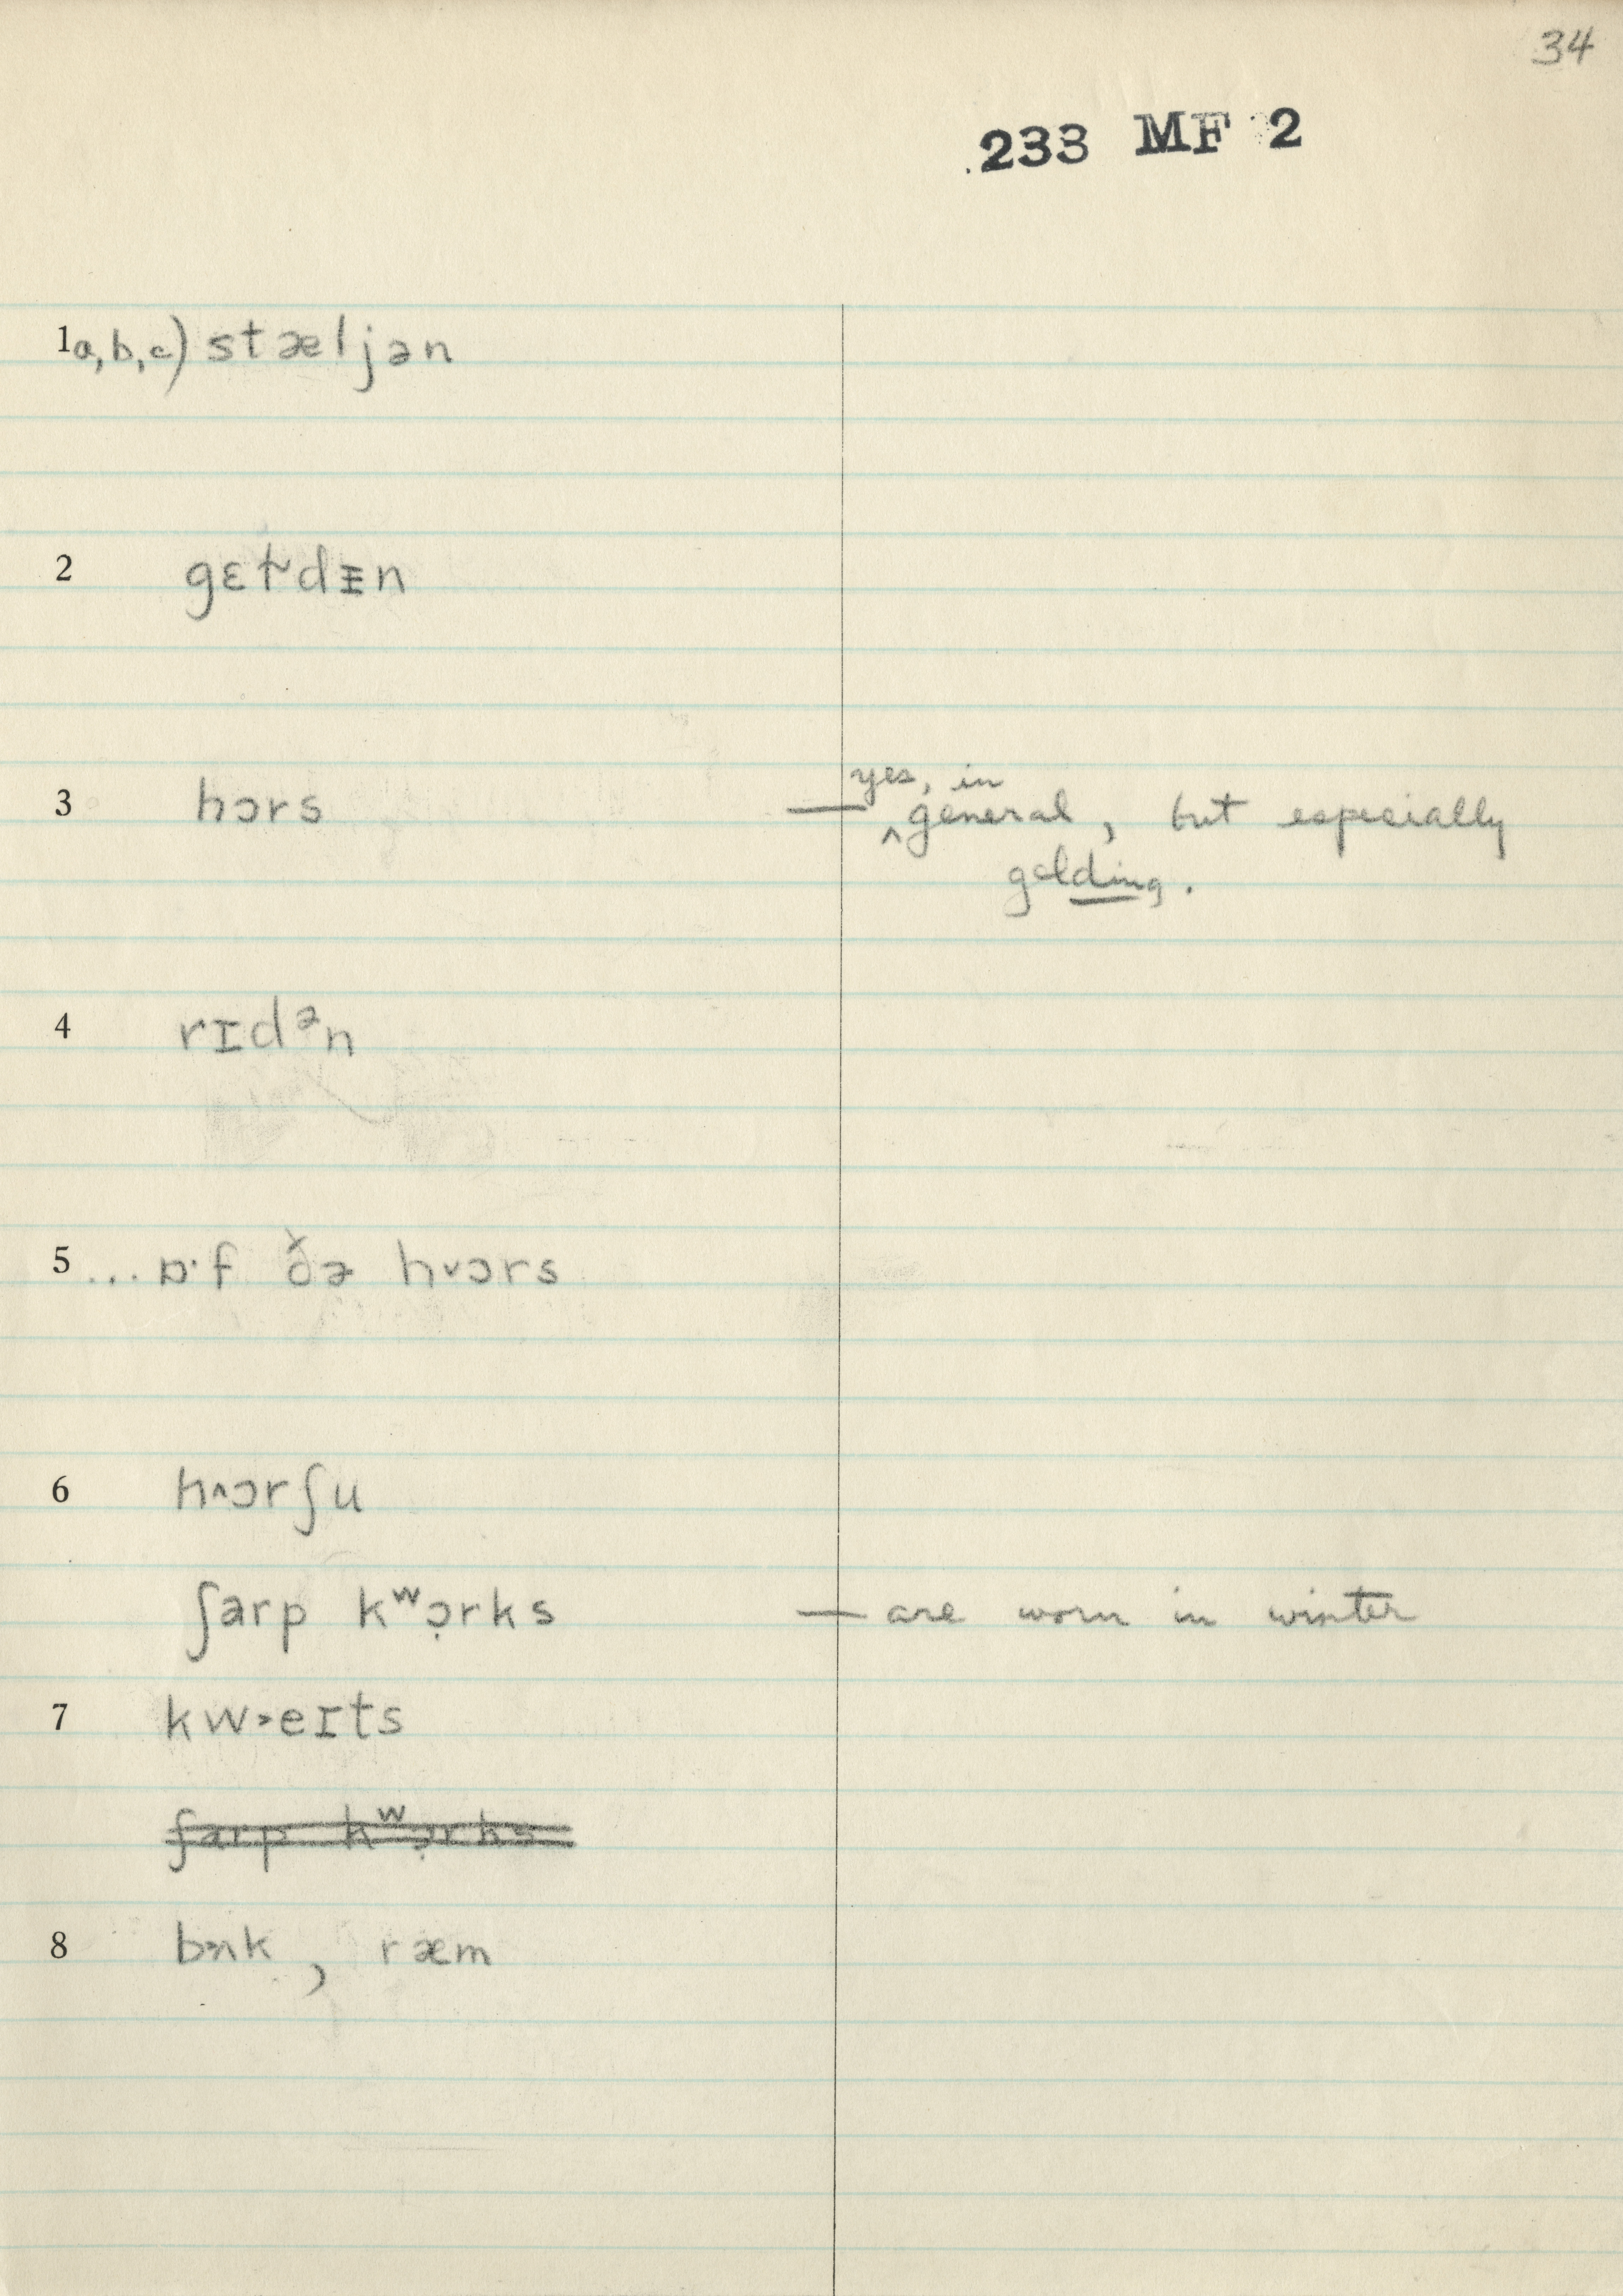 34
233 MF 2
1a,b,c) stæljən
2 gɛɫdɪn
3 hɔrs — yes, in general, but especially
gelding.
4 rɪdᵊn
5 ... ɒ·f ðə h˅ɔrs
6 h˄ɔrʃu
ʃarp kʷɔ̣rks — are worn in winter
7 kw˃eɪts
ʃarp kʷɔ̣rks
8 bʌk, ræm